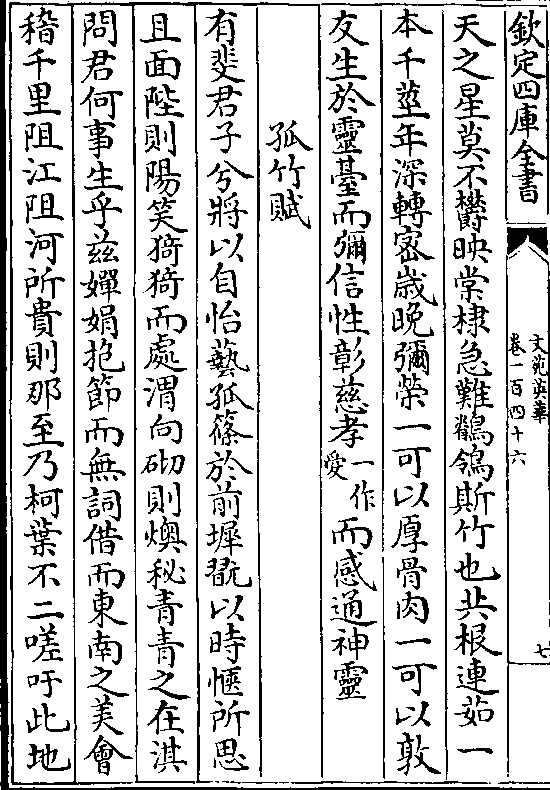 欽定四庫全書
文苑英華
卷一百四十六
七
天之星莫不欝映棠棣急難鶺鴒斯竹也共根連茹一
本千莖年深轉宻歳晚彌榮一可以厚骨肉一可以敦
友生於靈臺而彌信性彰慈孝一作愛而感通神靈
孤竹賦
有斐君子兮將以自怡藝孤篠於前墀翫以時愜所思
且面陛則陽笑猗猗而處渭向砌則燠秘青青之在淇
問君何事生乎兹嬋娟抱節而無詞借而東南之美會
稽千里阻江阻河所貴則那至乃柯葉不二嗟吁此地